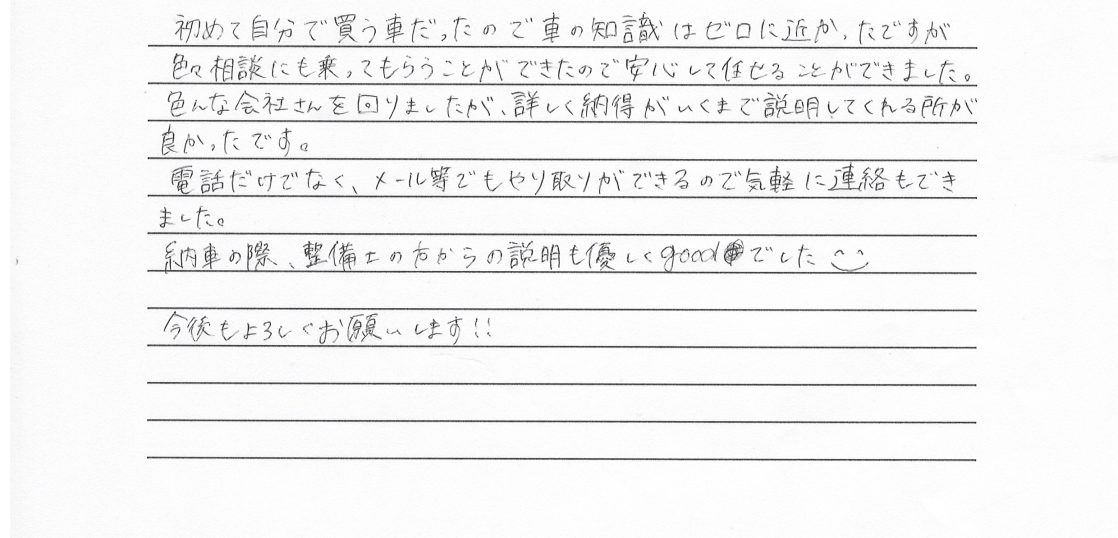 初めて自分で買う車だったので車の知識はゼロに近かったですが
色々相談にも乗ってもらうことができたので安心して任せることができました。
色んな会社さんを回りましたが、詳しく納得がいくまで説明してくれる所が
良かったです。
電話だけでなく、メール等でもやり取りができるので気軽に連絡もでき
ました。
納車の際、整備士の方からの説明も優しくgoodでした
今後もよろしくお願いします!!